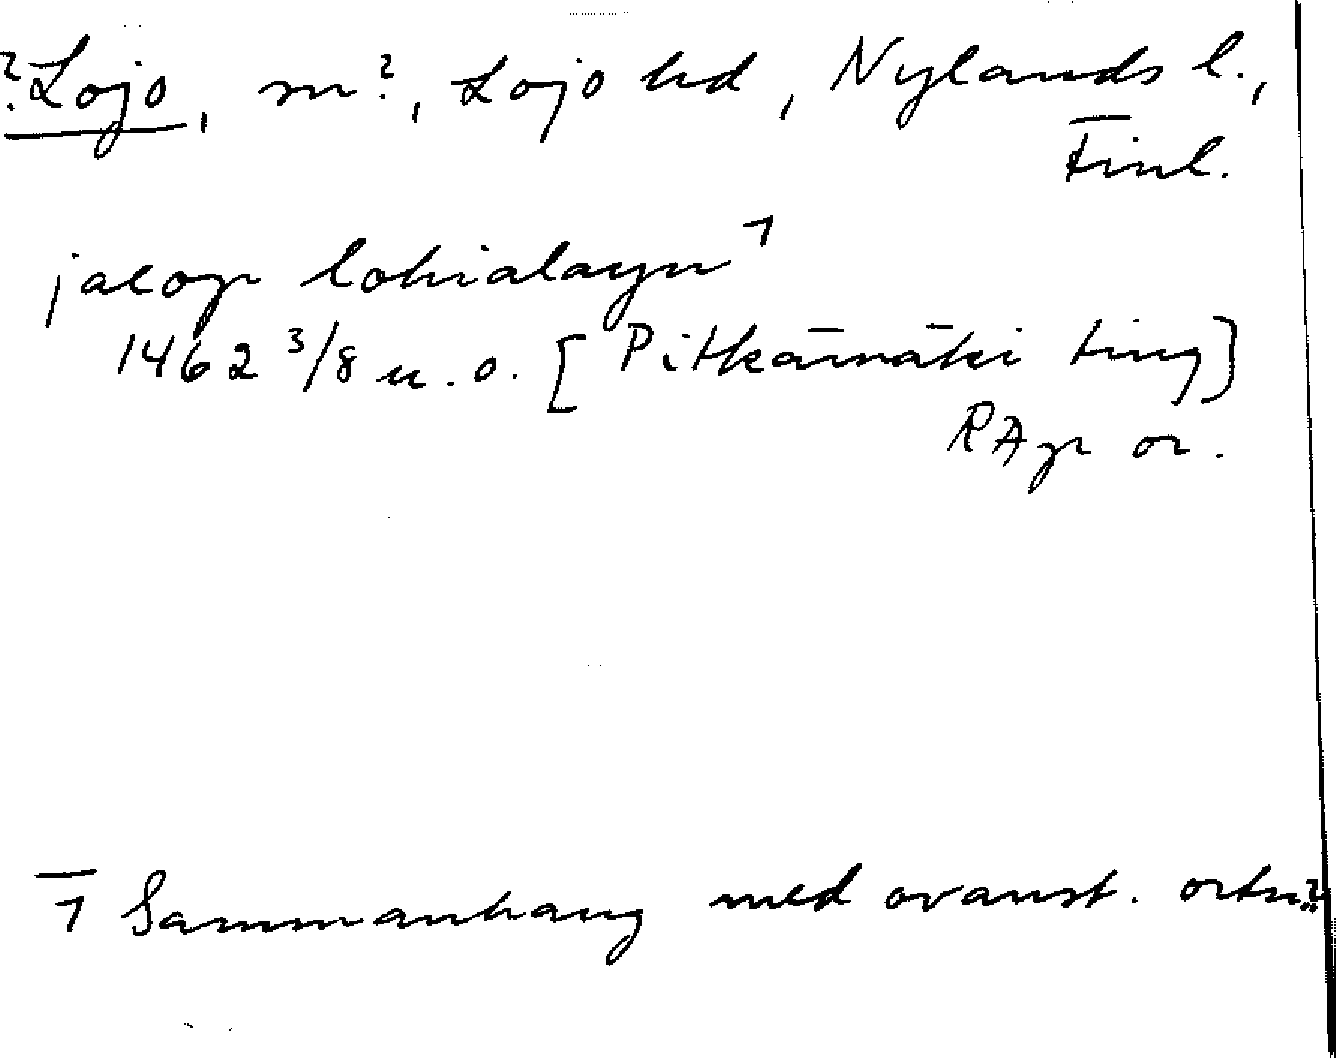 ? Lojo, m?, Lojo hd, Nylands l.,
Finl.
jacop lohialayn 1
1462 3/8 u.o. [Pitkämäki ting]
RAp or.
1 Sammanhang med ovanst. ortn?